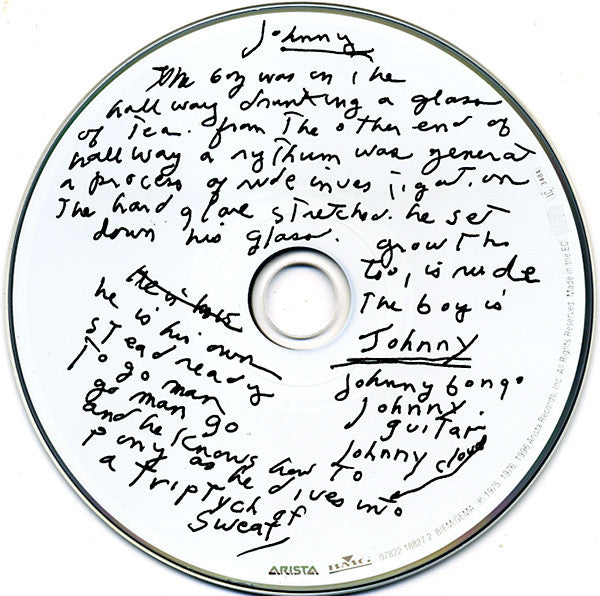 Johnny
The boy was in the
hall way drinking a glass
of Tea. from The other end of
hall way a rythum was generat
a process of nude inves tigation
The hand glove stretched. he set
down his glass.
growth
too, is nude
The boy is
Johnny
Johnny bongo
Johnny
guitar
Johnny clover
he is his own
stead ready
To go man
go man go
and he knows how to
pony as he dives into
a Triptych of
sweat
ARISTA BMG
07822 18827 2 BIEM/GEMA ℗ 1975, 1976, 1996 Arista Records, Inc. All Rights Reserved. Made in the EC